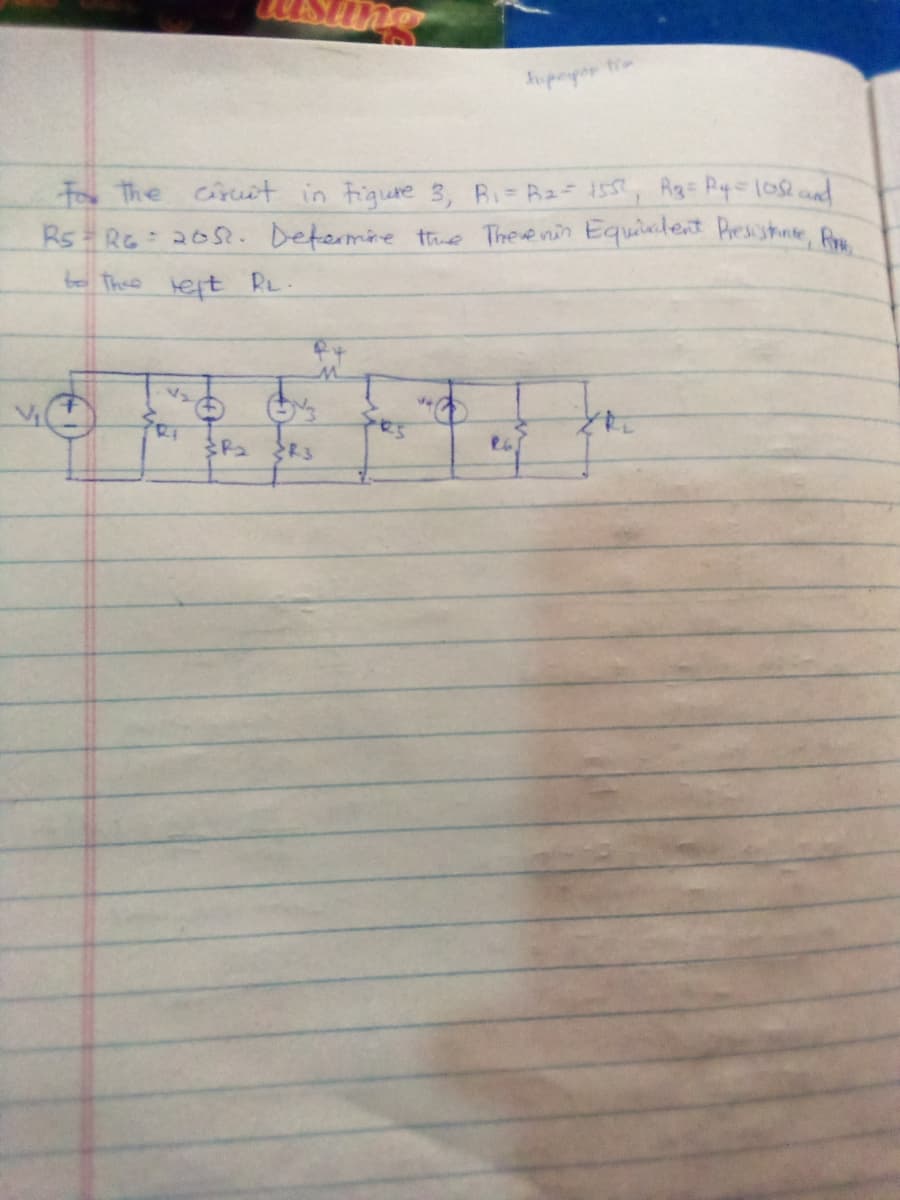 For The circuit in Figure 3, R1 = R2 = 15Ω, R3 = R4 = 10Ω and
R5 = R6 = 20Ω. Determine the Thevenin Equivalent Resistance, RTH,
to The left RL.
R4
V1
R1
V2
R2
V3
R3
R5
V4
R6
RL